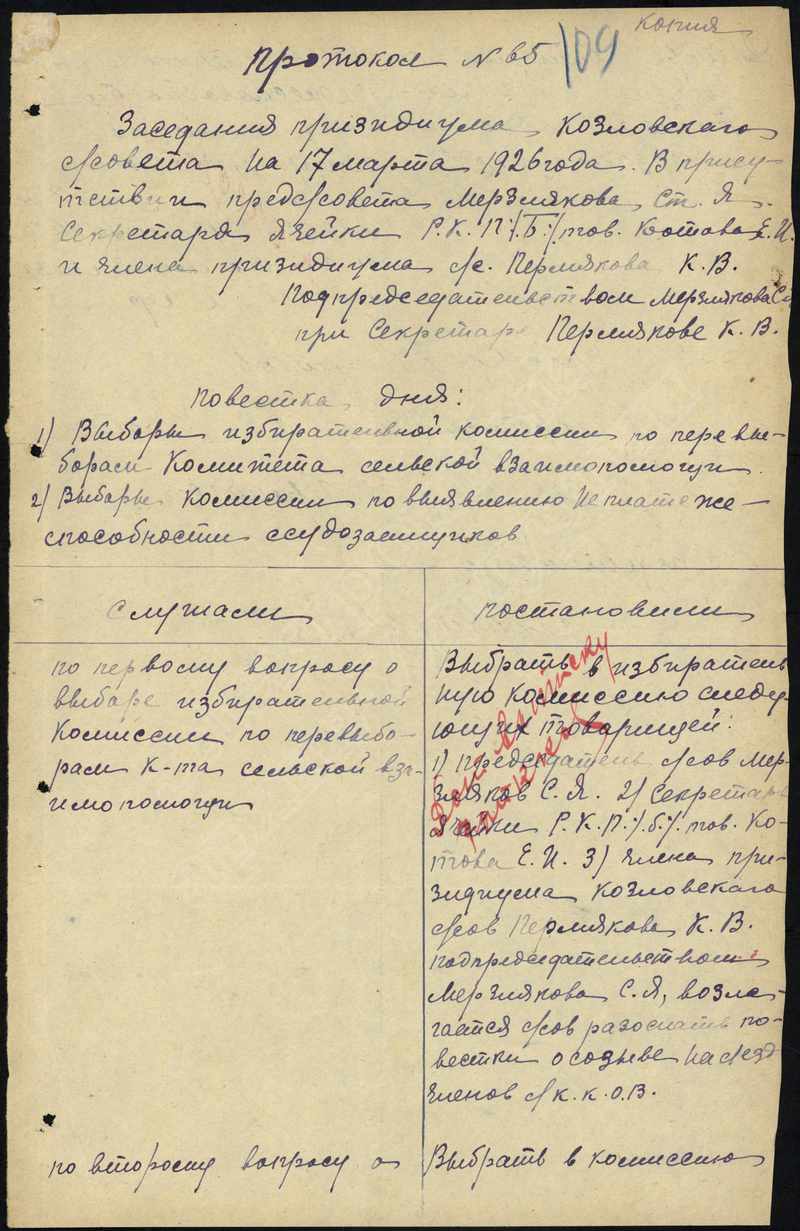 копия
109
Протокол № 65
Заседания призидиума Козловскаго
с/совета на 17 марта 1926 года. В прису-
тствии предс/совета Мерзлякова Ст. Я.
Секретаря Ячейки Р.К.П:/Б:/ тов. Котова Е.И.
и члена призидиума с/с. Пермякова К.В.
Подпредседательством Мерзлякова С.
при Секретаре Пермякове К.В.
Повестка дня:
1) Выборы избирательной комиссии по перевы-
борам Комитета сельской взаимопомощи.
2) Выборы комиссии по выявлению неплатеже-
способности ссудозаемщиков
Слушали
постановили
по первому вопросу о
выборе избирательной
Комиссии по перевыбо-
рам К-та сельской вза-
имопомощи
Выбрать в избиратель
ную комиссию следу-
ющих товарищей:
1) председатель с/сов Мер-
зляков С.Я. 2) Секретарь
Ячейки Р.К.П:/б:/ тов. Ко-
това Е.И. 3) члена при-
зидиума Козловскаго
с/сов Пермякова К.В.
подпредседательством
Мерзлякова С.Я, возла-
гается с/сов разослать по-
вестки о созыве на с/езд
членов с/к.к.о.в.
по второму вопросу о
Выбрать в комиссию